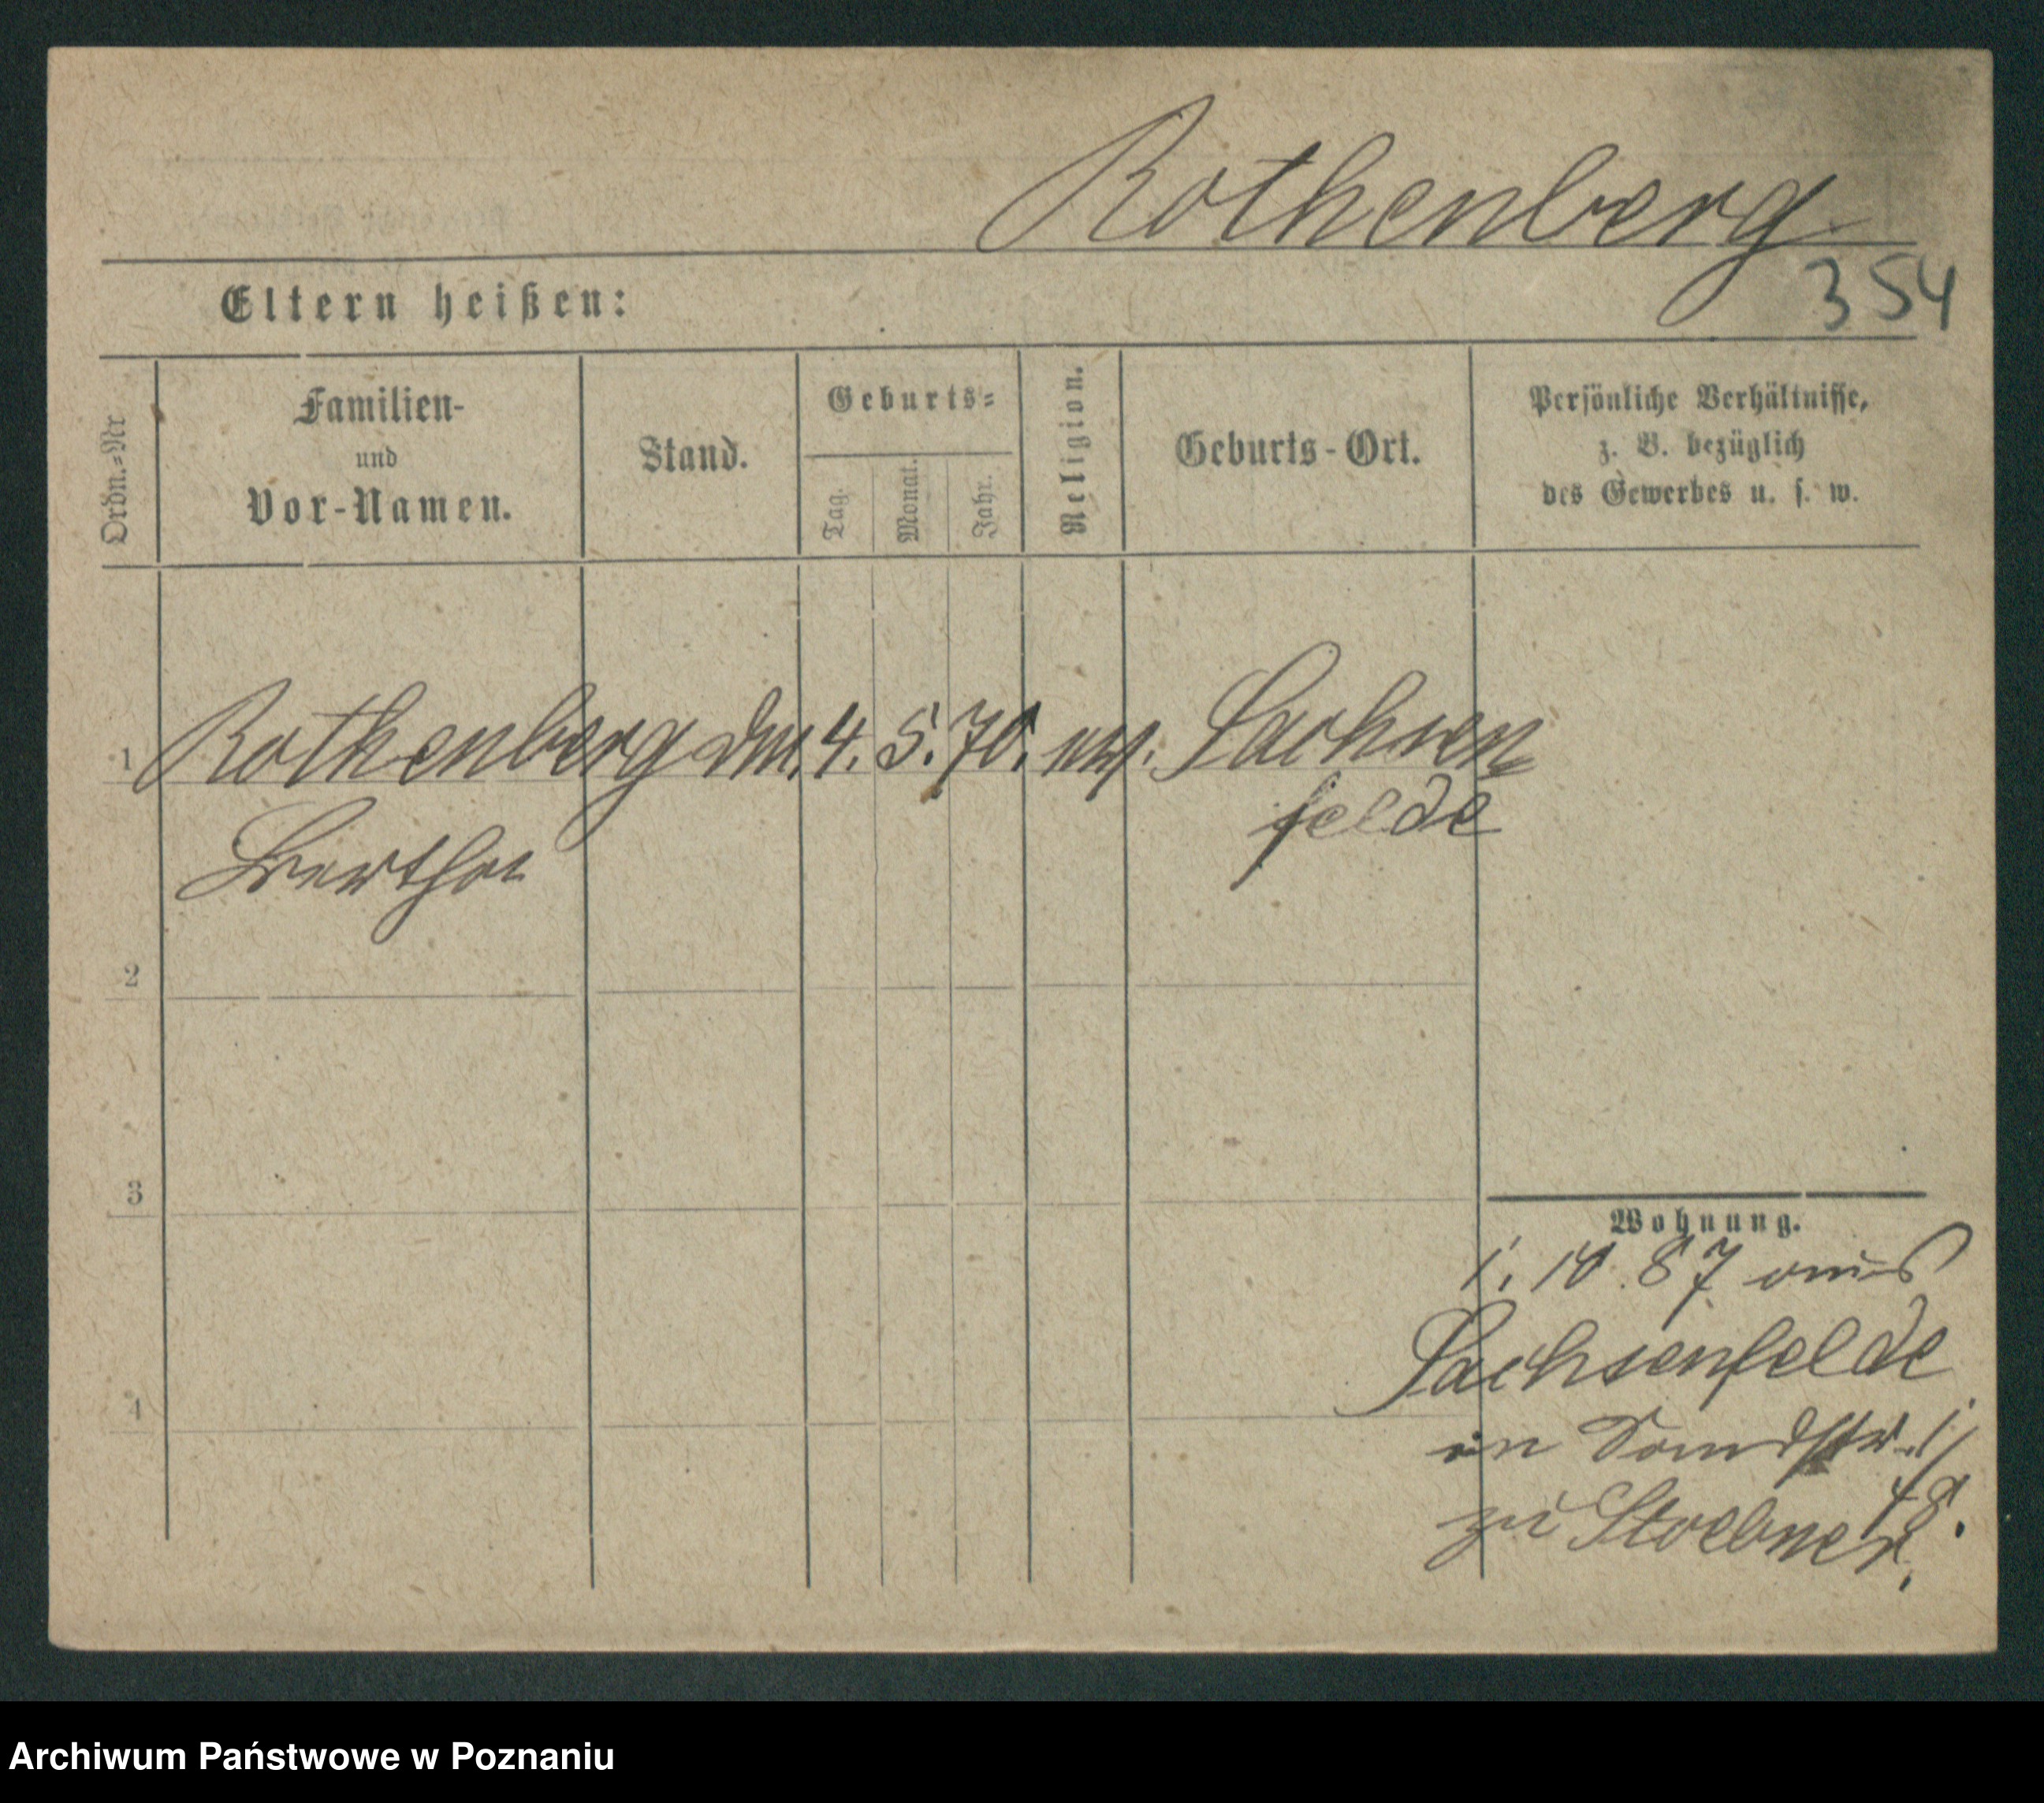 Rothenberg
354
Eltern heißen:
Ordn.=Nr
Familien-
und
Vor-Namen.
Stand.
Geburts=
Tag.
Monat.
Jahr.
Religion.
Geburts-Ort.
Persönliche Verhältnisse,
z. B. bezüglich
des Gewerbes u. s. w.
1 Rothenberg 4. 5. 70. Sachsen
felde
Bertha
2
3
4
Wohnung.
1. 10 87 aus
Sachsenfelde
in Sandstr.
zu Stoebner.
Archiwum Państwowe w Poznaniu